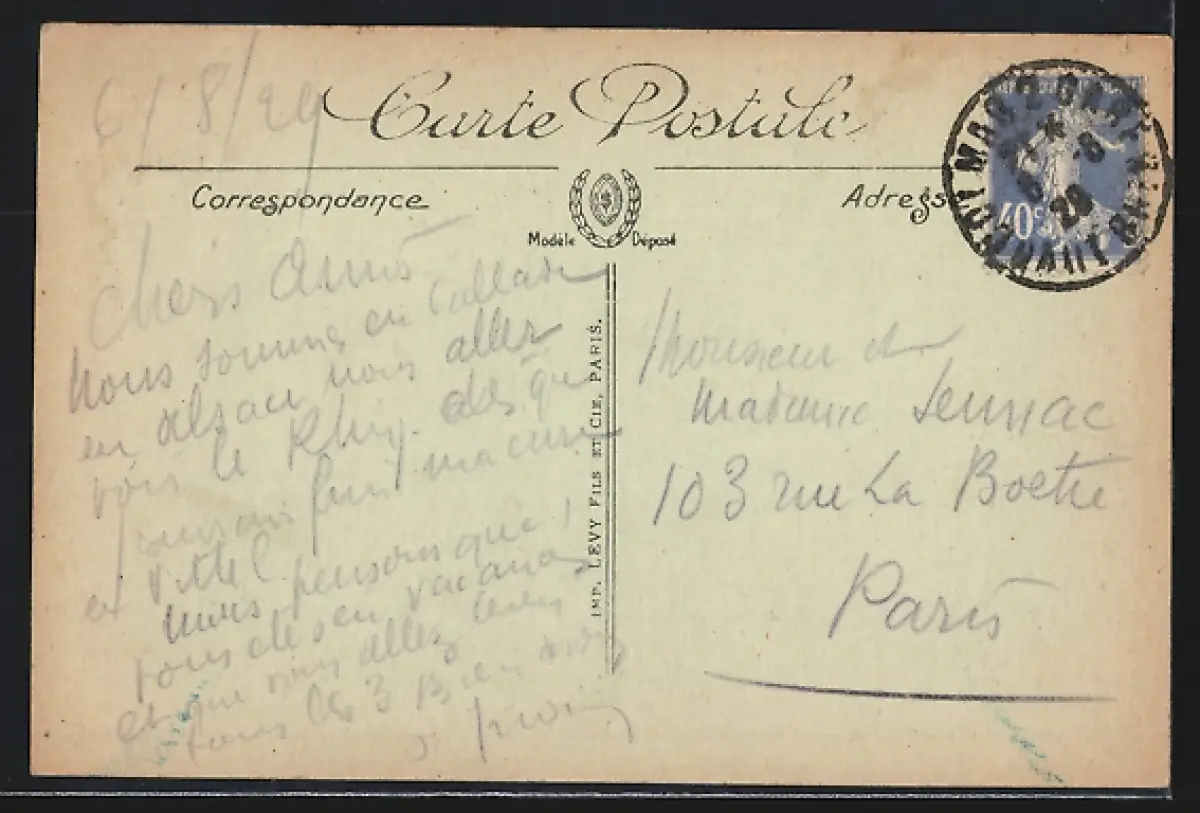 6/8/29
Carte Postale
Correspondance
Adress
Modèle Déposé
40c
COLMAR GARE
HAUT RHIN
6 -8
29
Chers Amis
Nous sommes en ballade
en Alsace nous allez
voir le Rhin. dès que
j'aurais fini ma cure
a Vittel
nous pensons que
tous deux en vacances
et que vous allez
tous les 3 Bien
IMP. LEVY FILS ET CIE, PARIS.
Monsieur et
Madame
103 rue La Boetie
Paris